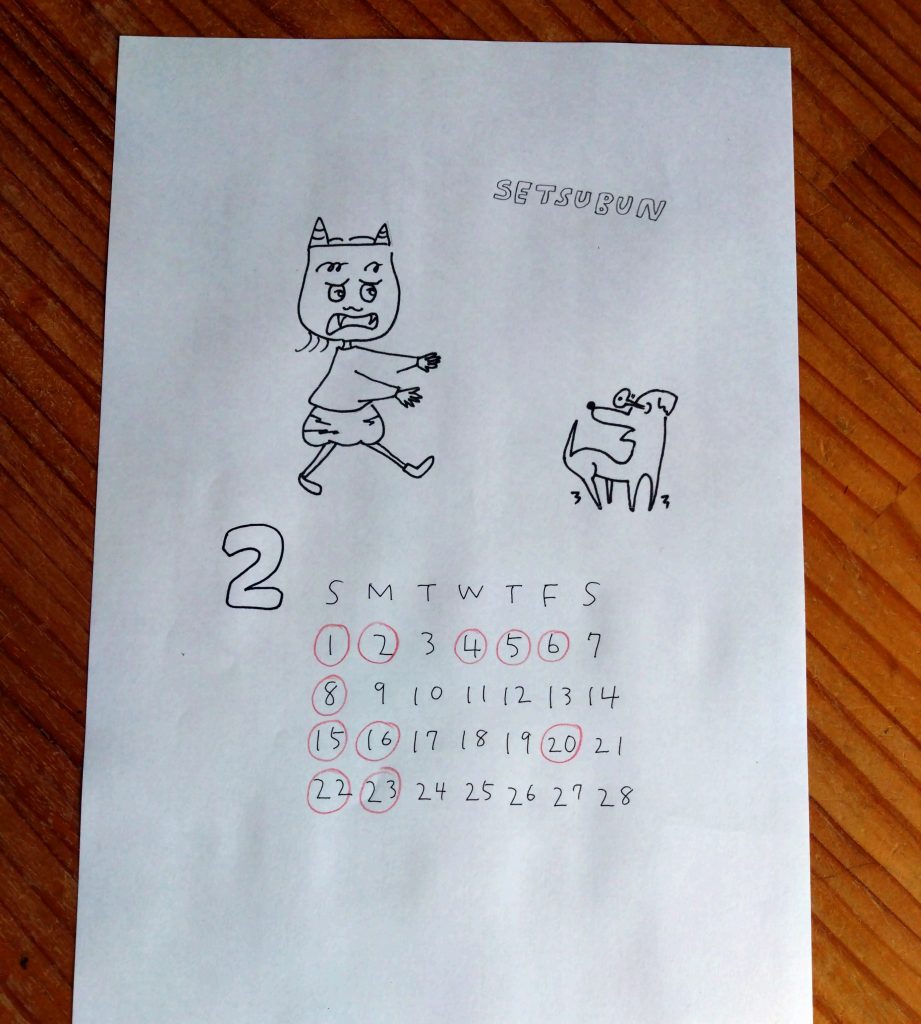 SETSUBUN
2
S M T W T F S
1 2 3 4 5 6 7
8 9 10 11 12 13 14
15 16 17 18 19 20 21
22 23 24 25 26 27 28